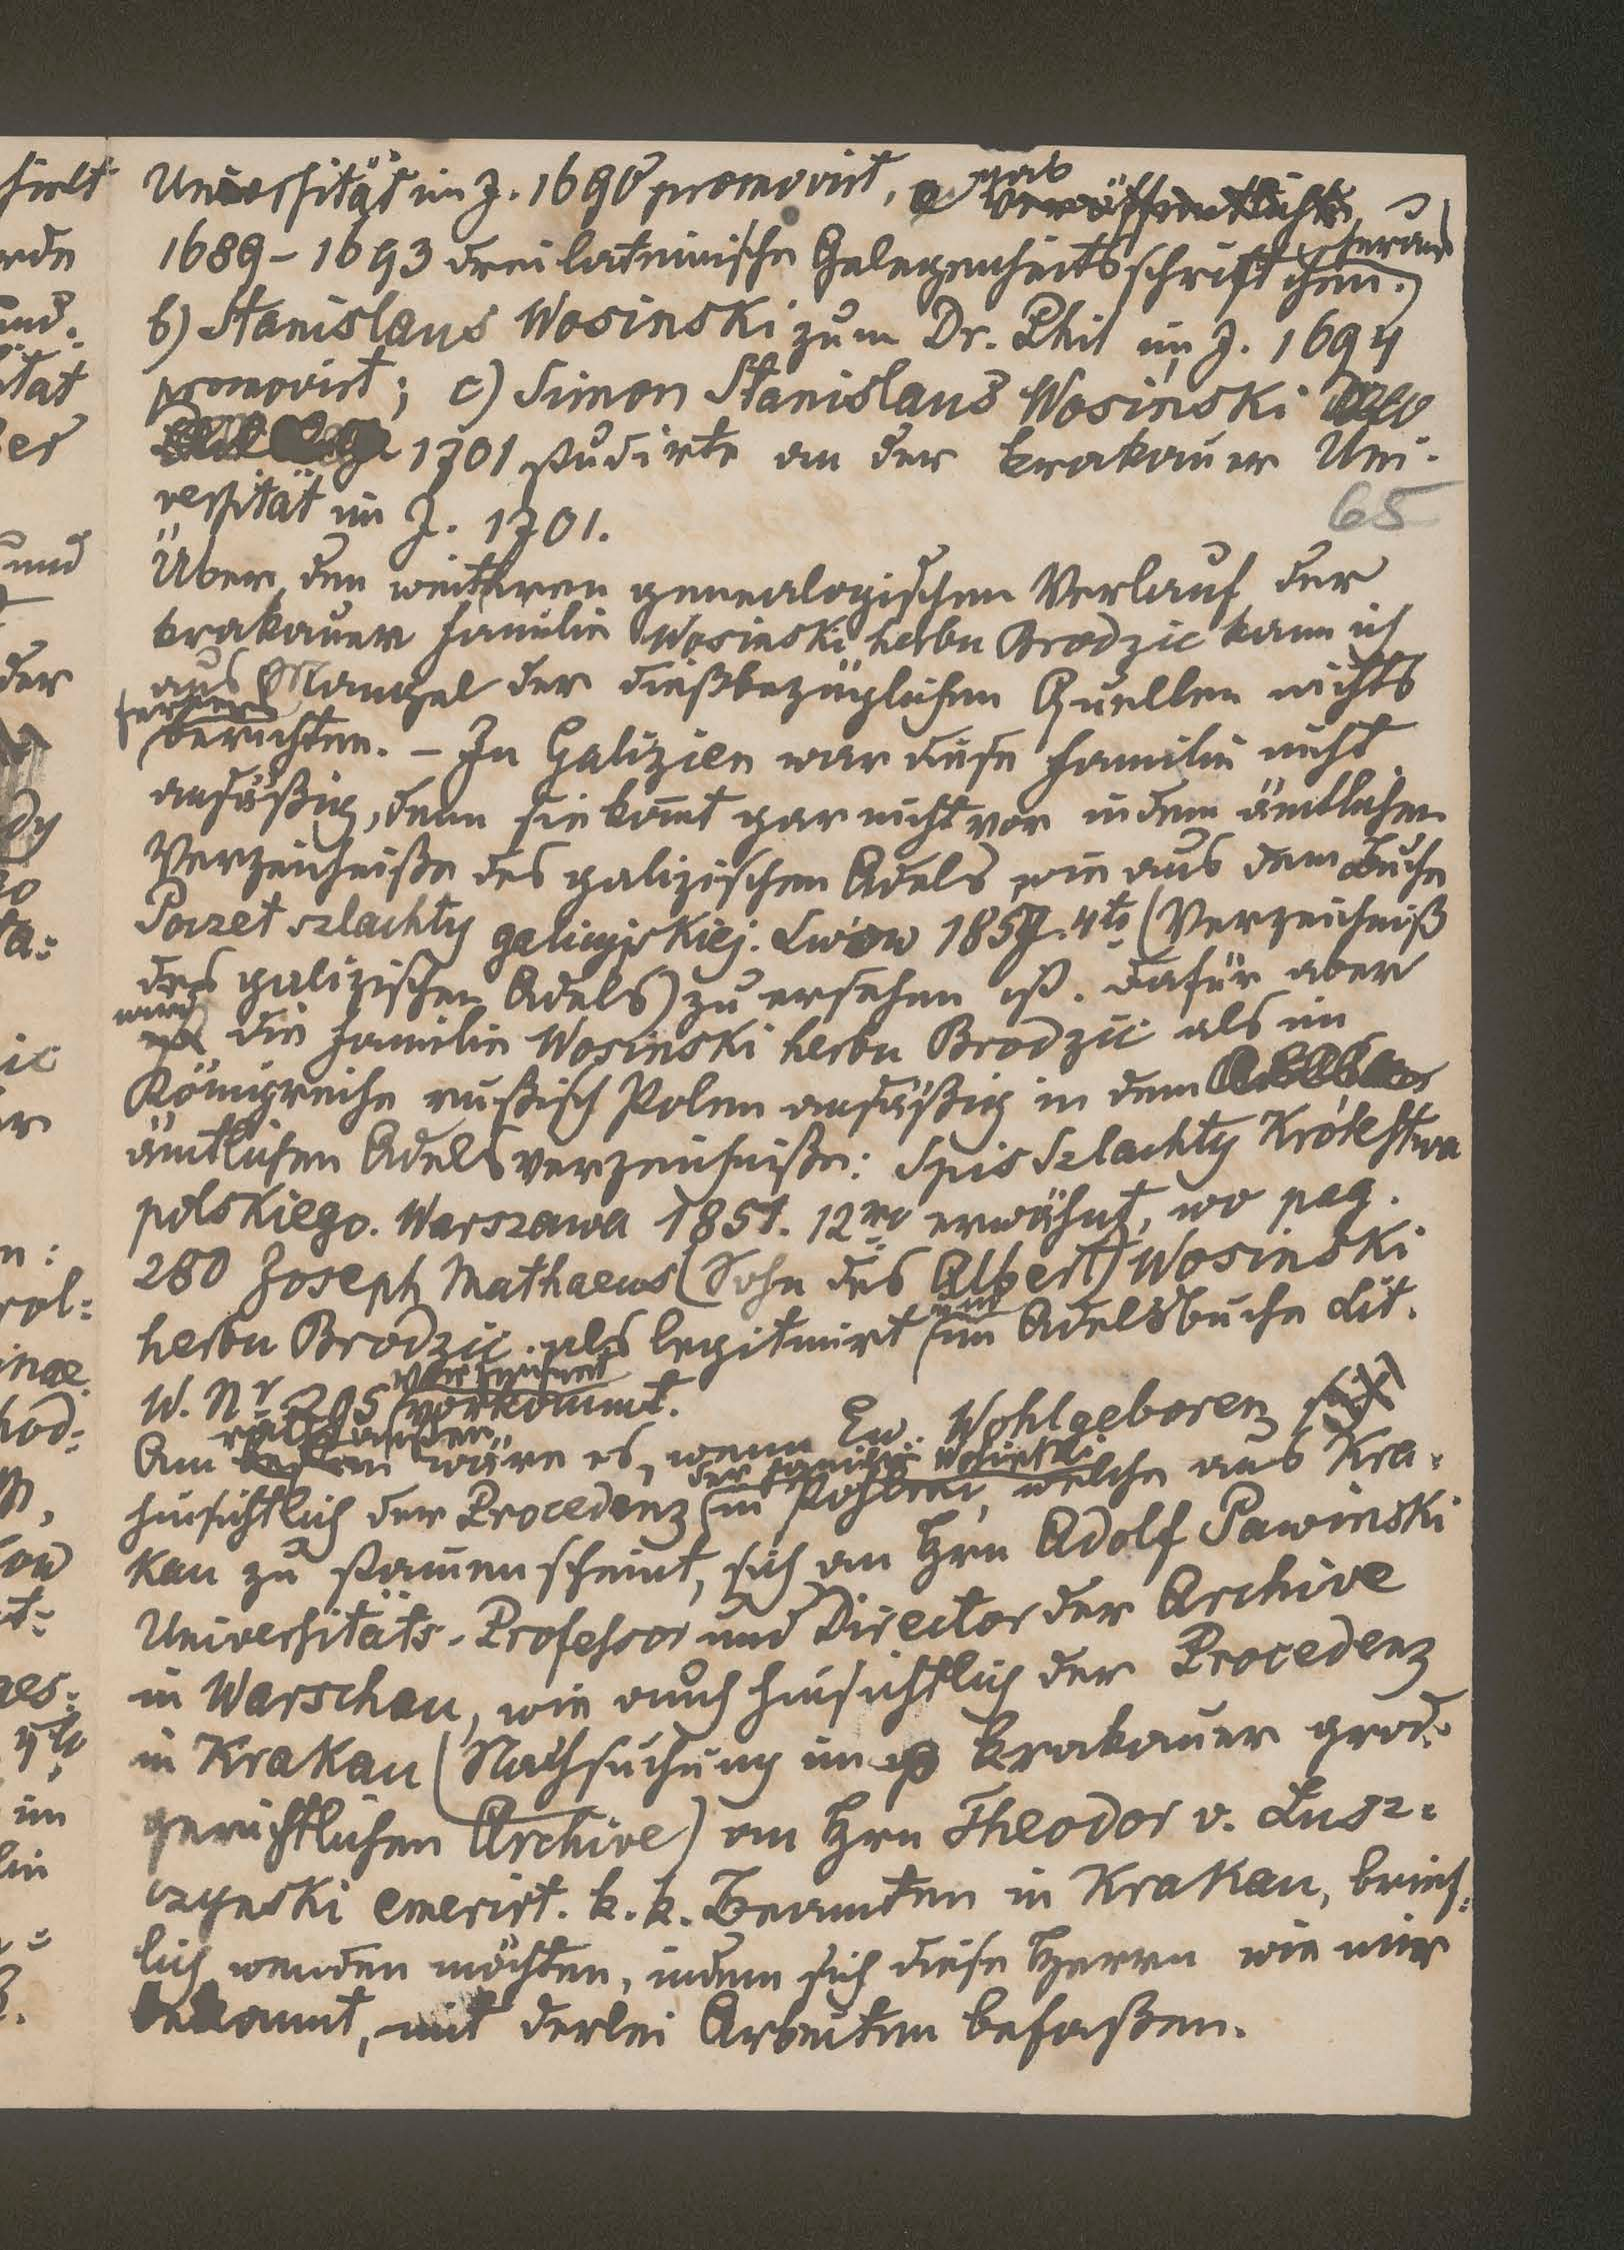 Universität im J. 1690 promovirt, gab veröffentlichte
1689-1693 drei lateinische Gelegenheitsschriftchen heraus
b) Stanislaus Wosinski zum Dr. Phil im J. 1694
promovirt; c) Simon Stanislaus Wosinski
1701 studirte an der krakauer Uni-
versität im J. 1701.
65
Über den weiteren genealogischen Verlauf der
krakauer Familie Wosinski herbu Brodzic kann ich
aus Mangel der dießbezüglichen Quellen nichts
ferners
berichten. - In Galizien war diese Familie nicht
ansäßig, denn sie komt gar nicht vor in dem ämtlichen
Verzeichniße des galizischen Adels wie aus dem Buche
Poczet szlachty galicyjskiej. Lwów 1857. 4to (Verzeichniß
des galizischen Adels) zu ersehen ist. Dafür aber
wird
ist die Familie Wosinski herbu Brodzic als im
Königreiche rußisch Polen ansäßig in dem
ämtlichen Adelsverzeichniße: Spis Szlachty Królestwa
polskiego. Warszawa 1851. 12mo erwähnt, wo pag.
280 Joseph Mathaeus (Sohn des Albert) Wosinski
und
herbu Brodzic als legitimirt im Adelsbuche Lit.
verzeichnet
W. Nr 295 vorkommt.
rathsamsten
Am besten wäre es, wenn Ew. Wohlgeboren sich
der Familie Wosinski
hinsichtlich der Procedenz in welche aus Kra-
kau zu stamen scheint, sich an Hrn Adolf Pawinski
Universitäts-Professor und Director der Archive
in Warschau, wie auch hinsichtlich der Procedenz
in Krakau (Nachsuchung im krakauer grod-
gerichtlichen Archive) an Hrn Theodor v. Lusz-
czynski emerirt. k. k. Beamten in Krakau, brief-
lich wenden möchten, indem sich diese Herren wie mir
bekannt, mit derlei Arbeiten befaßen.